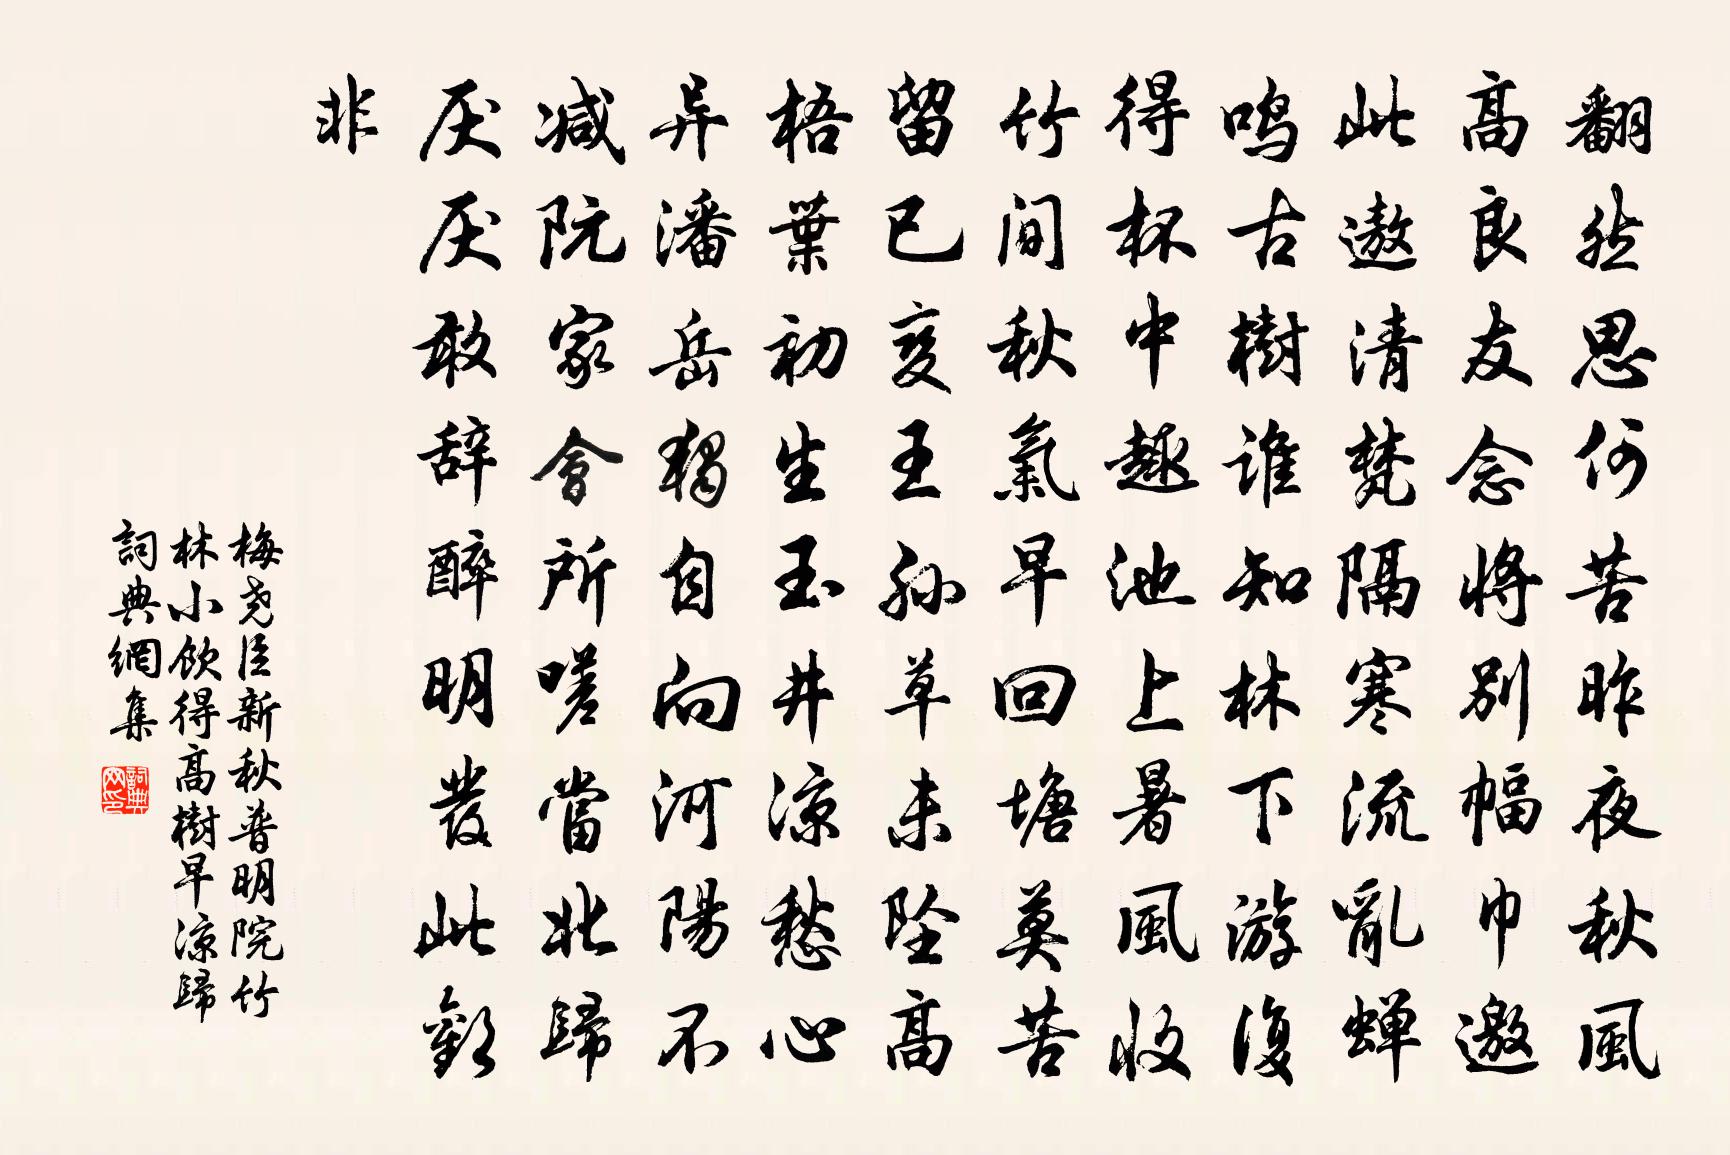 翻然思何苦昨夜秋風
高良友念将别幅巾邀
此遨清梵隔寒流亂蝉
鸣古樹谁知林下游復
得杯中趣池上暑風收
竹间秋氣早回塘莫苦
留已变王孙草未坠高
梧葉初生玉井凉愁心
异潘岳独自向河陽不
减阮家會所嗟當北歸
厌厌敢辞醉明发此歡
非
梅尧臣新秋普明院竹
林小飲得高樹早凉歸
詞典網集
詞典网印